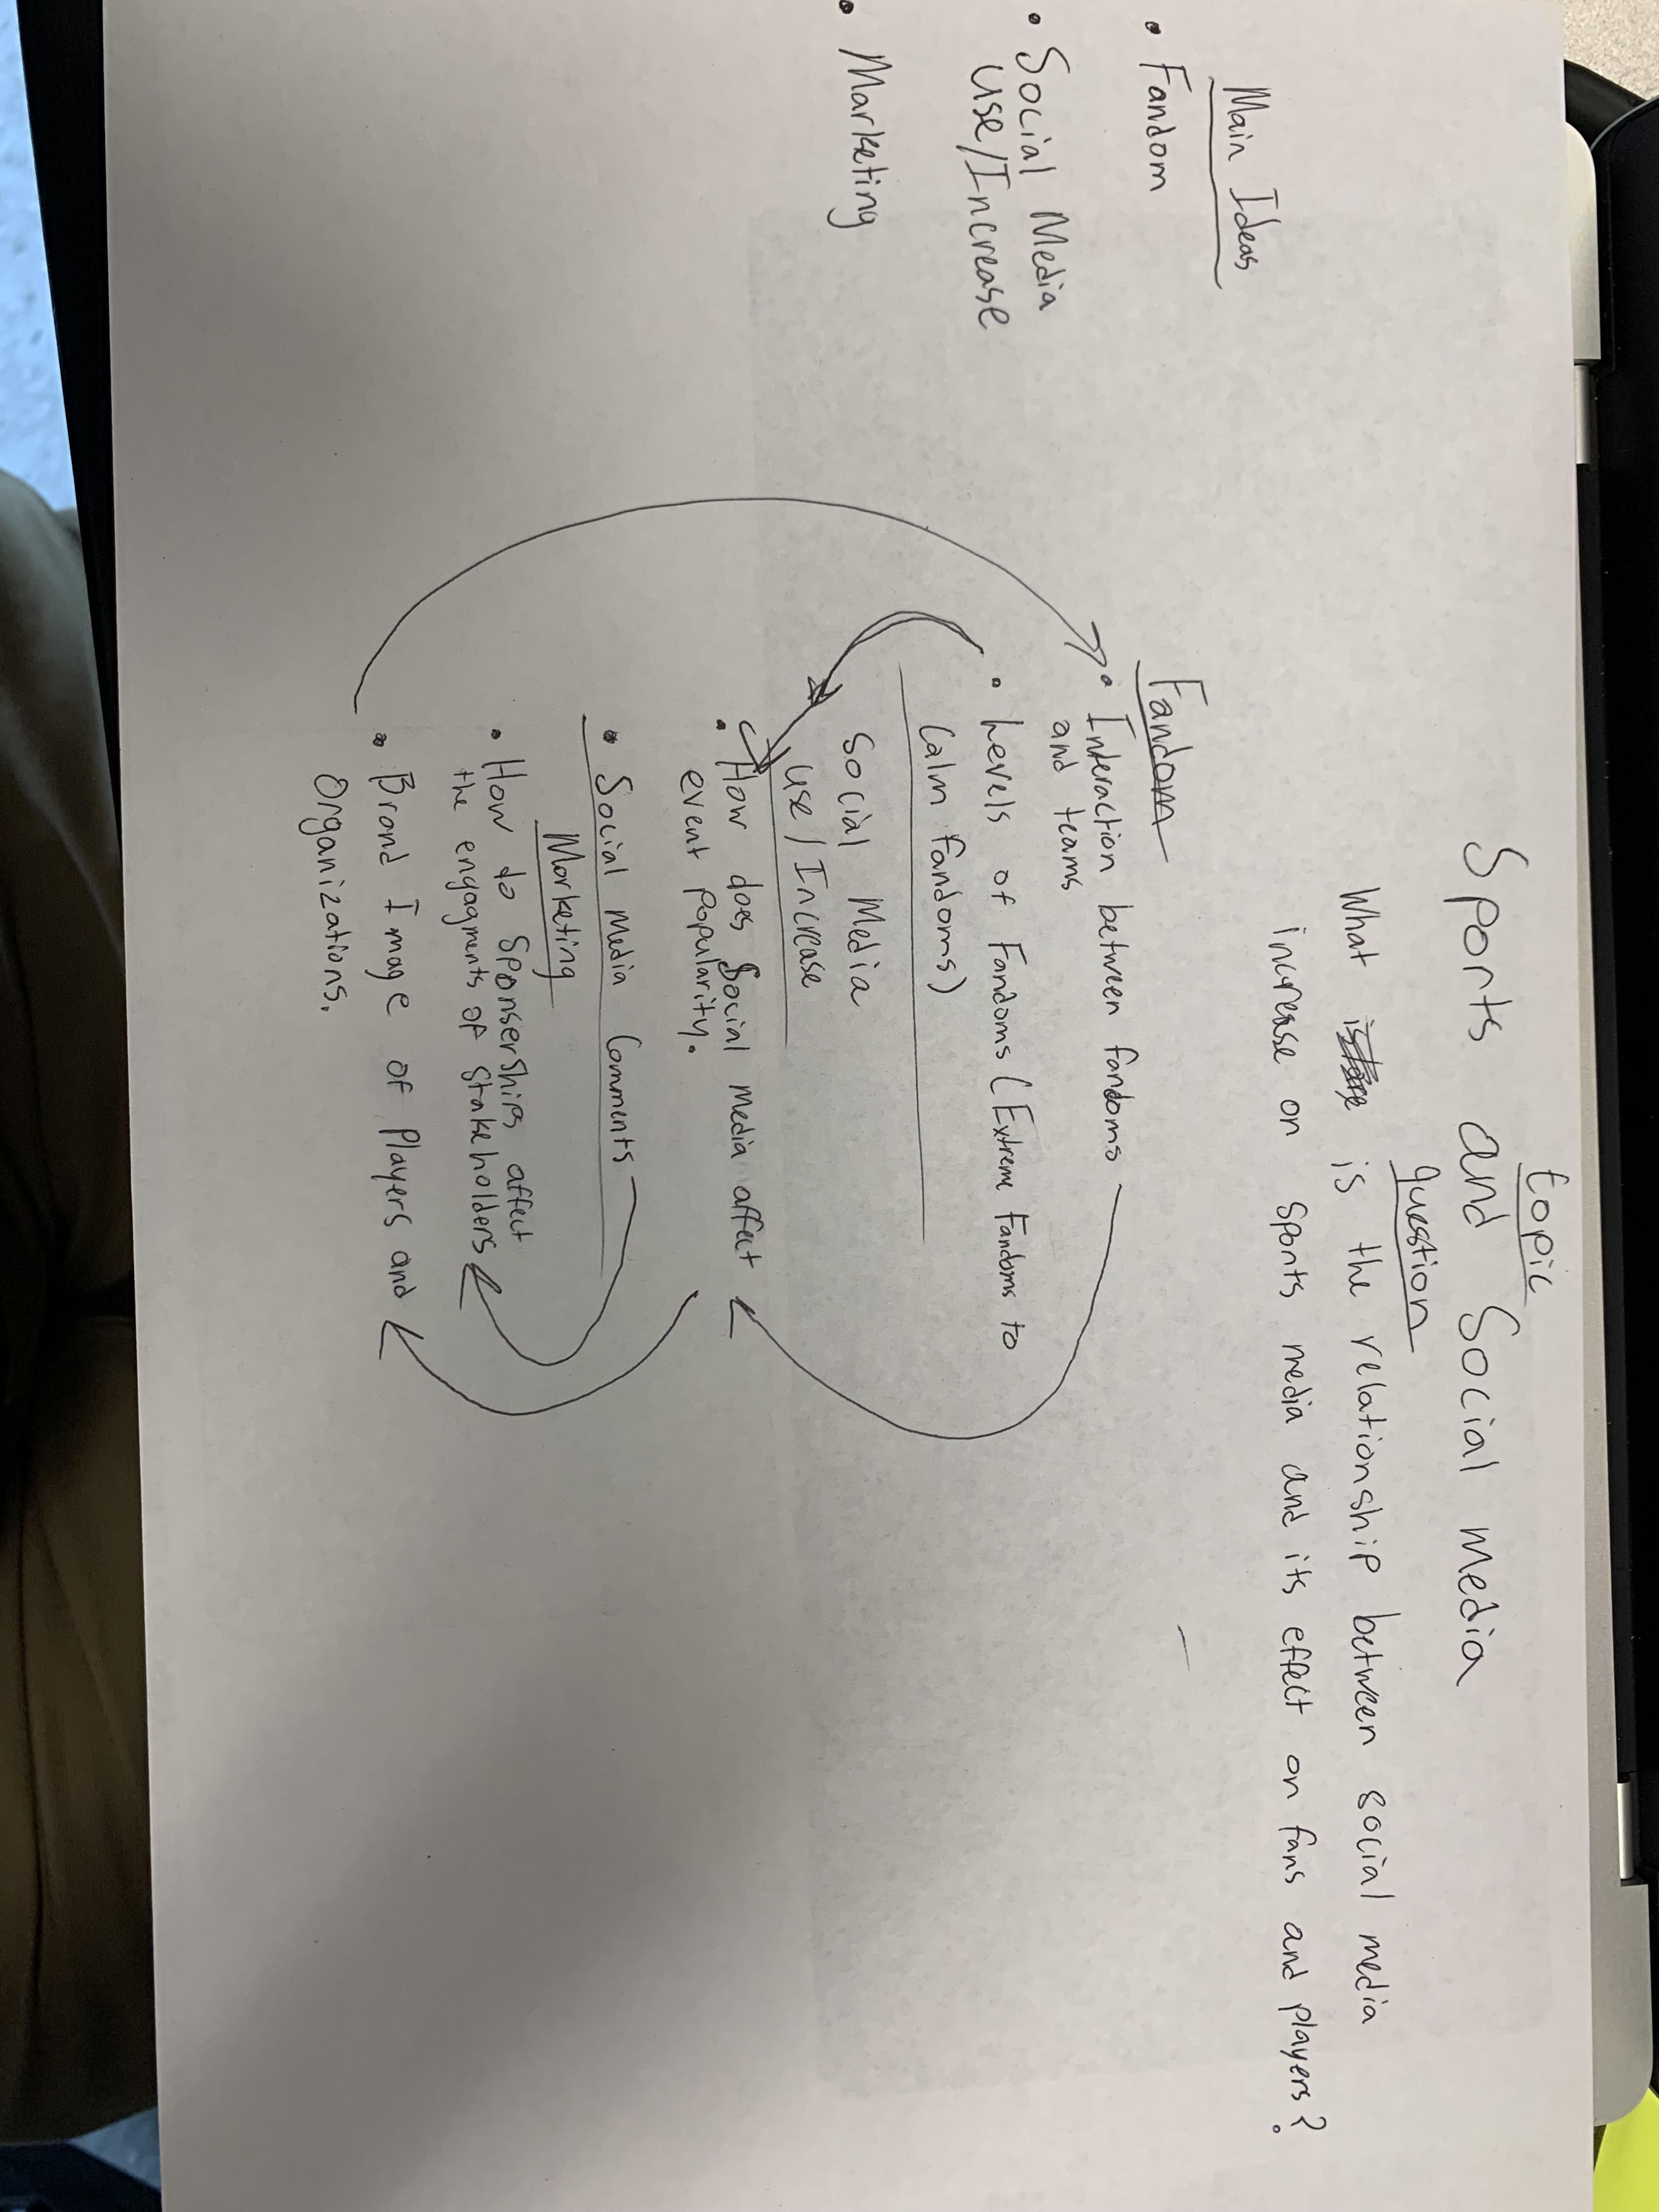 topic
Sports and Social media
question
What is the relationship between social media
increase on sports media and its effect on fans and players?
Main Ideas
• Fandom
• Social Media
Use/Increase
• Marketing
Fandom
• Interaction between fandoms
and teams
• Levels of Fandoms (Extreme Fandoms to
Calm fandoms)
Social Media
Use/Increase
• How does Social media affect
event popularity.
• Social Media Comments
Marketing
• How to Sponserships affect
the engagments of Stakeholders
• Brand Image of Players and
Organizations.